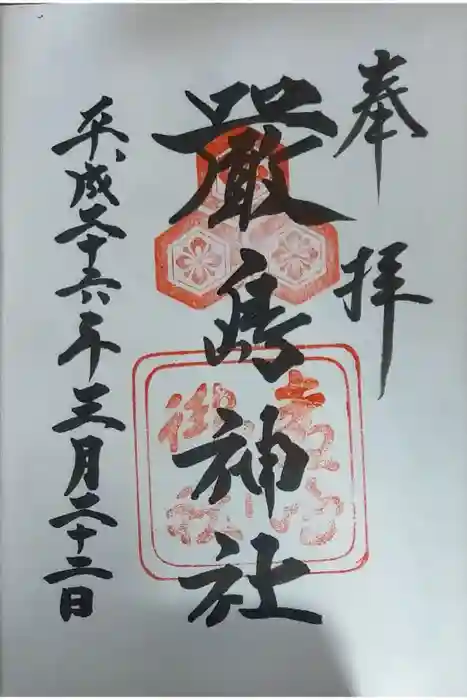 奉拝
厳島神社
平成二十六年三月二十二日